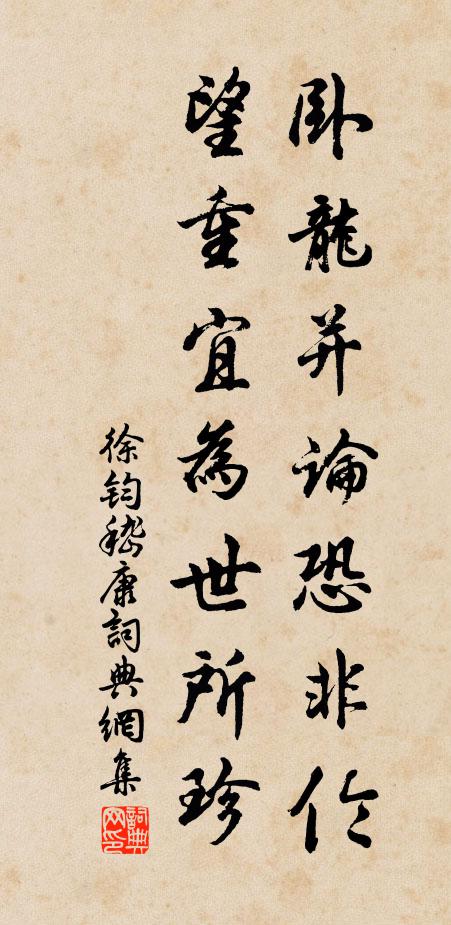 卧龍并論恐非伦
望重宜為世所珍
徐鈞嵇康詞典網集
詞典网印